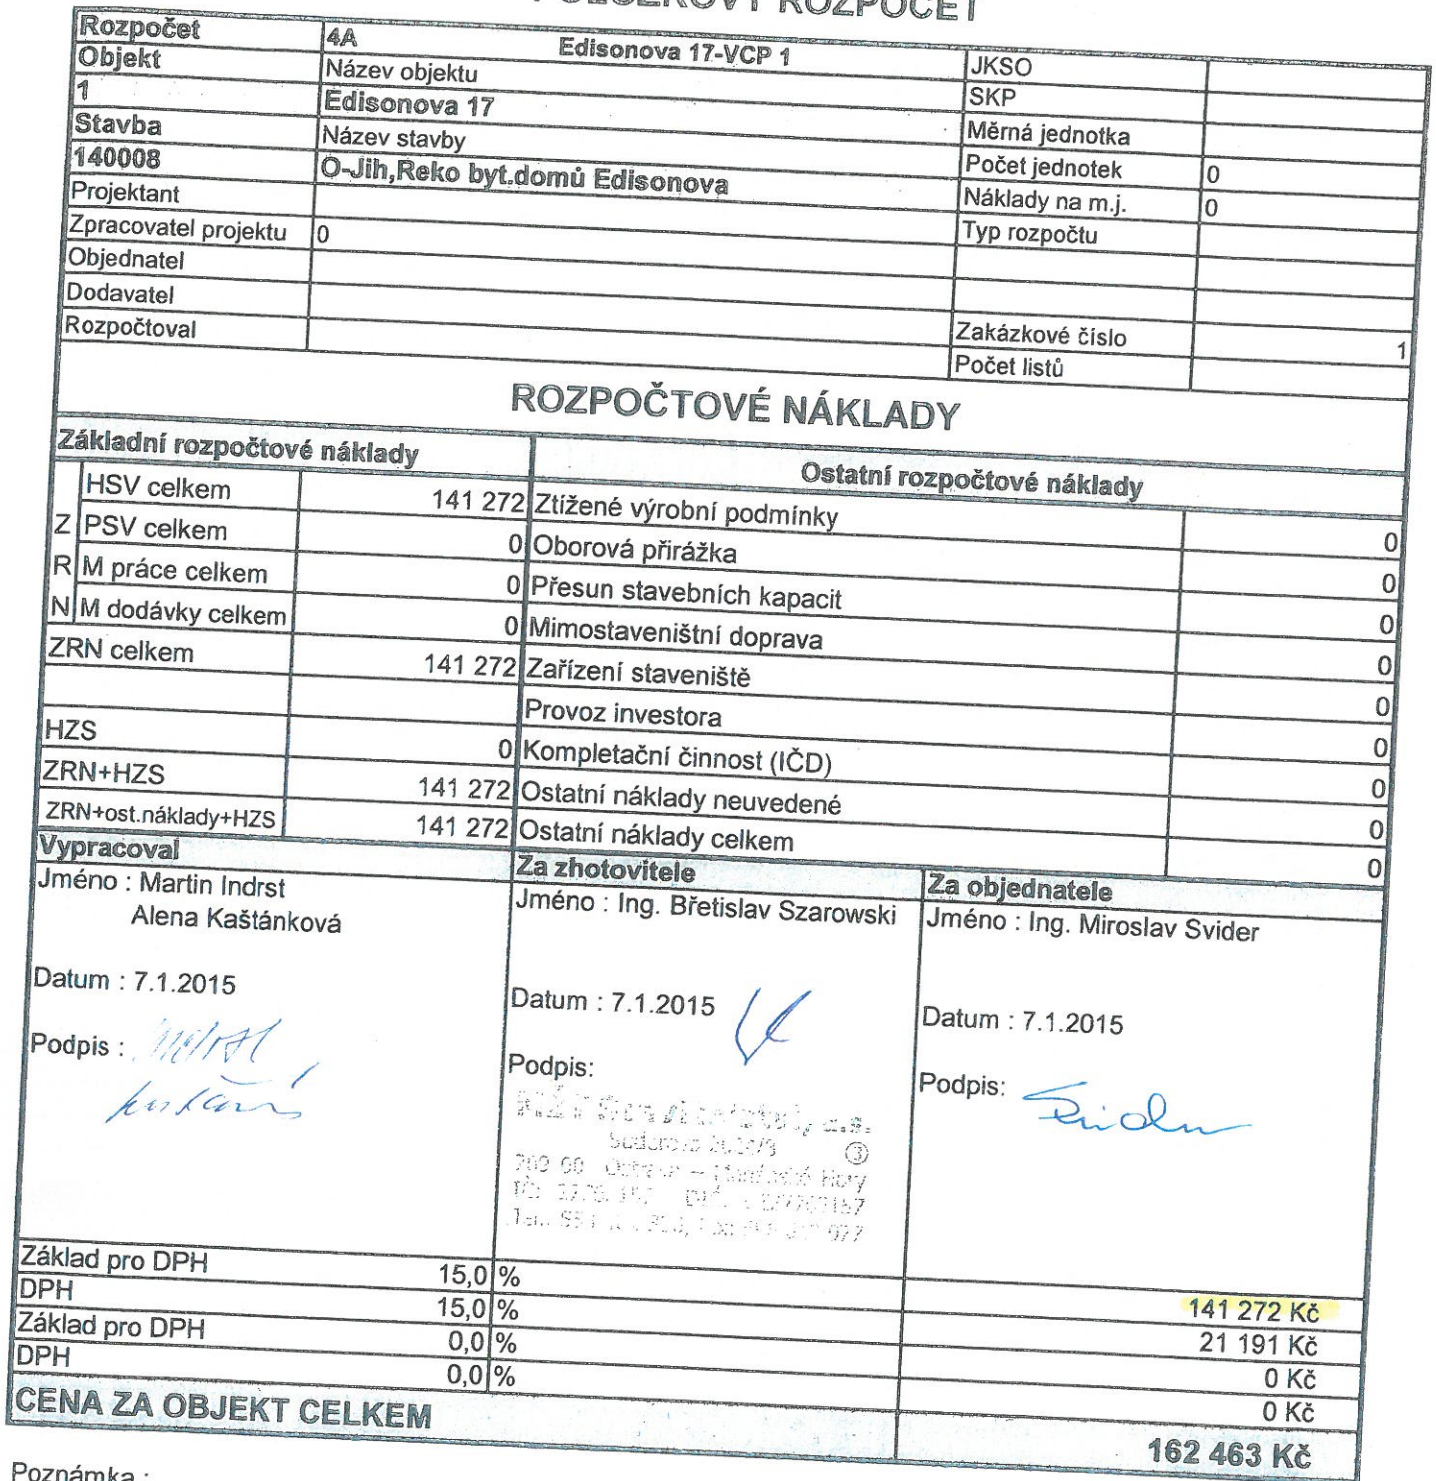 POLOŽKOVÝ ROZPOČET
Rozpočet 4A Edisonova 17-VCP 1 JKSO
Objekt Název objektu SKP
1 Edisonova 17 Měrná jednotka
Stavba Název stavby Počet jednotek 0
140008 O-Jih,Reko byt.domů Edisonova Náklady na m.j. 0
Projektant Typ rozpočtu
Zpracovatel projektu 0
Objednatel
Dodavatel Zakázkové číslo 1
Rozpočtoval Počet listů
ROZPOČTOVÉ NÁKLADY
Základní rozpočtové náklady Ostatní rozpočtové náklady
HSV celkem 141 272 Ztížené výrobní podmínky 0
Z PSV celkem 0 Oborová přirážka 0
R M práce celkem 0 Přesun stavebních kapacit 0
N M dodávky celkem 0 Mimostaveništní doprava 0
ZRN celkem 141 272 Zařízení staveniště 0
Provoz investora 0
HZS 0 Kompletační činnost (IČD) 0
ZRN+HZS 141 272 Ostatní náklady neuvedené 0
ZRN+ost.náklady+HZS 141 272 Ostatní náklady celkem 0
Vypracoval Za zhotovitele Za objednatele
Jméno : Martin Indrst Jméno : Ing. Břetislav Szarowski Jméno : Ing. Miroslav Svider
Alena Kaštánková
Datum : 7.1.2015 Datum : 7.1.2015 Datum : 7.1.2015
Podpis : Podpis: Podpis:
a.s.
3
709 00 Hory
Základ pro DPH 15,0 % 141 272 Kč
DPH 15,0 % 21 191 Kč
Základ pro DPH 0,0 % 0 Kč
DPH 0,0 % 0 Kč
CENA ZA OBJEKT CELKEM 162 463 Kč
Poznámka :